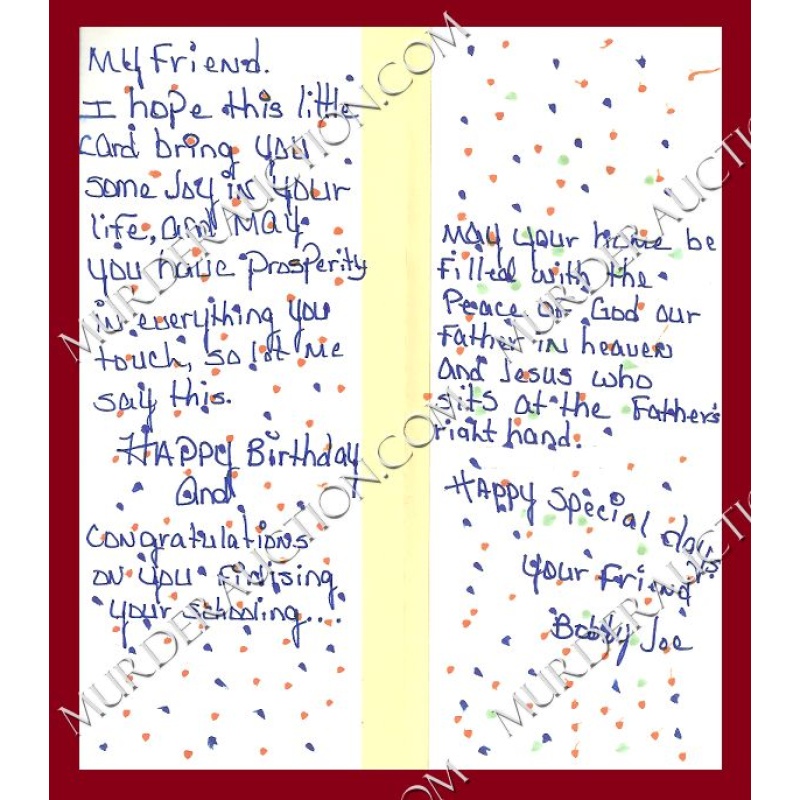 My Friend.
I hope this little
card bring you
some Joy in your
life, and MAY
you have Prosperity
in everything you
touch, so let Me
say this.
HAPPY Birthday
And
Congratulations
on you finising
your schooling....
MAY your home be
filled with the
Peace of God our
Father in heaven
and Jesus who
sits at the Father's
right hand.
HAPPY special day
your friend
Bobby Joe
MURDERAUCTION.COM
MURDERAUCTION.COM
MURDERAUCTION.COM
MURDERAUCTION.COM